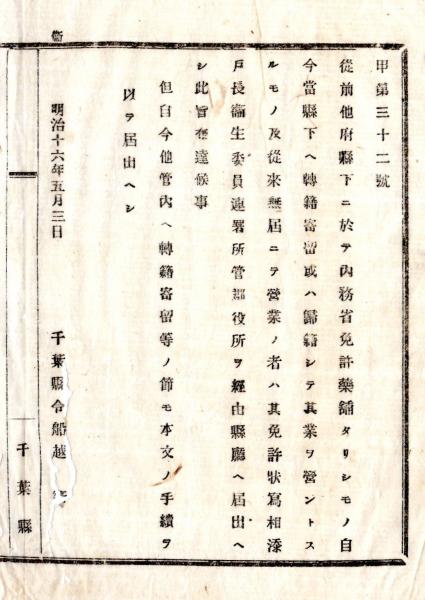 甲第三十二號
從前他府縣下ニ於テ內務省免許藥舖タリシモノ自
今當縣下ヘ轉籍寄留或ハ歸籍シテ其業ヲ營ントス
ルモノ及從來無屆ニテ營業ノ者ハ其免許狀寫相添
戶長衞生委員連署所管郡役所ヲ經由縣廳ヘ屆出ヘ
シ此旨布達候事
但自今他管內ヘ轉籍寄留等ノ節モ本文ノ手續ヲ
以テ屆出ヘシ
明治十六年五月三日
千葉縣令船越衞
千葉縣
衞